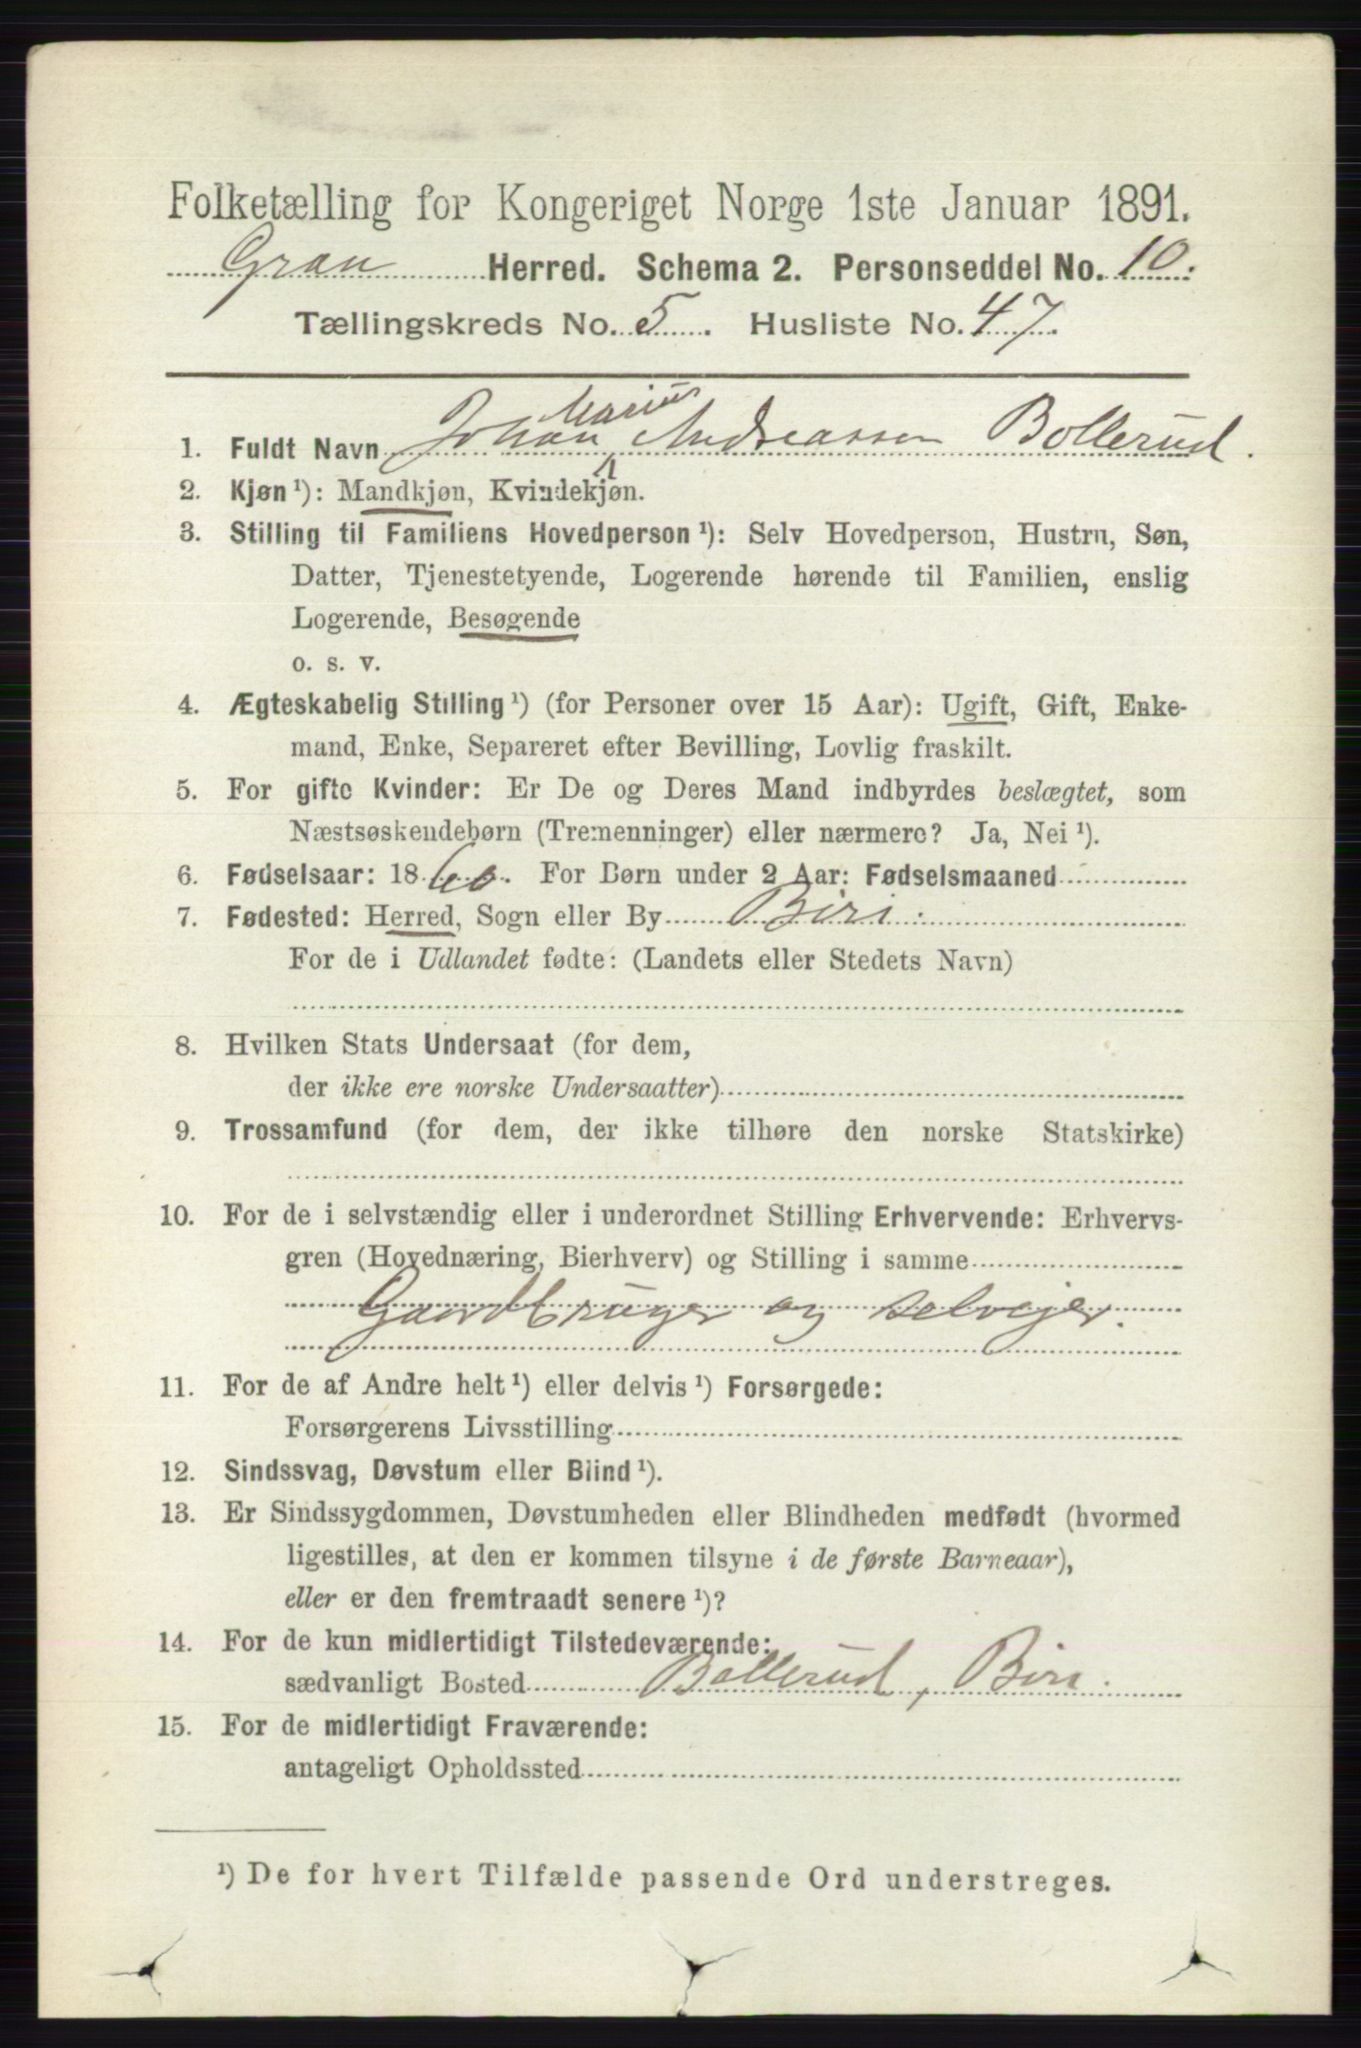 Folketælling for Kongeriget Norge 1ste Januar 1891.
Gran Herred. Schema 2. Personseddel No. 10.
Tællingskreds No. 5. Husliste No. 47.
Marius
1. Fuldt Navn Johan Andreassen Bollerud.
2. Kjøn ¹): Mandkjøn, Kvindekjøn.
3. Stilling til Familiens Hovedperson ¹): Selv Hovedperson, Hustru, Søn,
Datter, Tjenestetyende, Logerende hørende til Familien, enslig
Logerende, Besøgende
o. s. v.
4. Ægteskabelig Stilling ¹) (for Personer over 15 Aar): Ugift, Gift, Enke-
mand, Enke, Separeret efter Bevilling, Lovlig fraskilt.
5. For gifte Kvinder: Er De og Deres Mand indbyrdes beslægtet, som
Næstsøskendebørn (Tremenninger) eller nærmere? Ja, Nei ¹).
6. Fødselsaar: 1860. For Børn under 2 Aar: Fødselsmaaned
7. Fødested: Herred, Sogn eller By Biri.
For de i Udlandet fødte: (Landets eller Stedets Navn)
8. Hvilken Stats Undersaat (for dem,
der ikke ere norske Undersaatter)
9. Trossamfund (for dem, der ikke tilhøre den norske Statskirke)
10. For de i selvstændig eller i underordnet Stilling Erhvervende: Erhvervs-
gren (Hovednæring, Bierhverv) og Stilling i samme
Gaardbruger og selvejer.
11. For de af Andre helt ¹) eller delvis ¹) Forsørgede:
Forsørgerens Livsstilling
12. Sindssvag, Døvstum eller Blind ¹).
13. Er Sindssygdommen, Døvstumheden eller Blindheden medfødt (hvormed
ligestilles, at den er kommen tilsyne i de første Barneaar),
eller er den fremtraadt senere ¹)?
14. For de kun midlertidigt Tilstedeværende:
sædvanligt Bosted Bollerud, Biri.
15. For de midlertidigt Fraværende:
antageligt Opholdssted
¹) De for hvert Tilfælde passende Ord understreges.